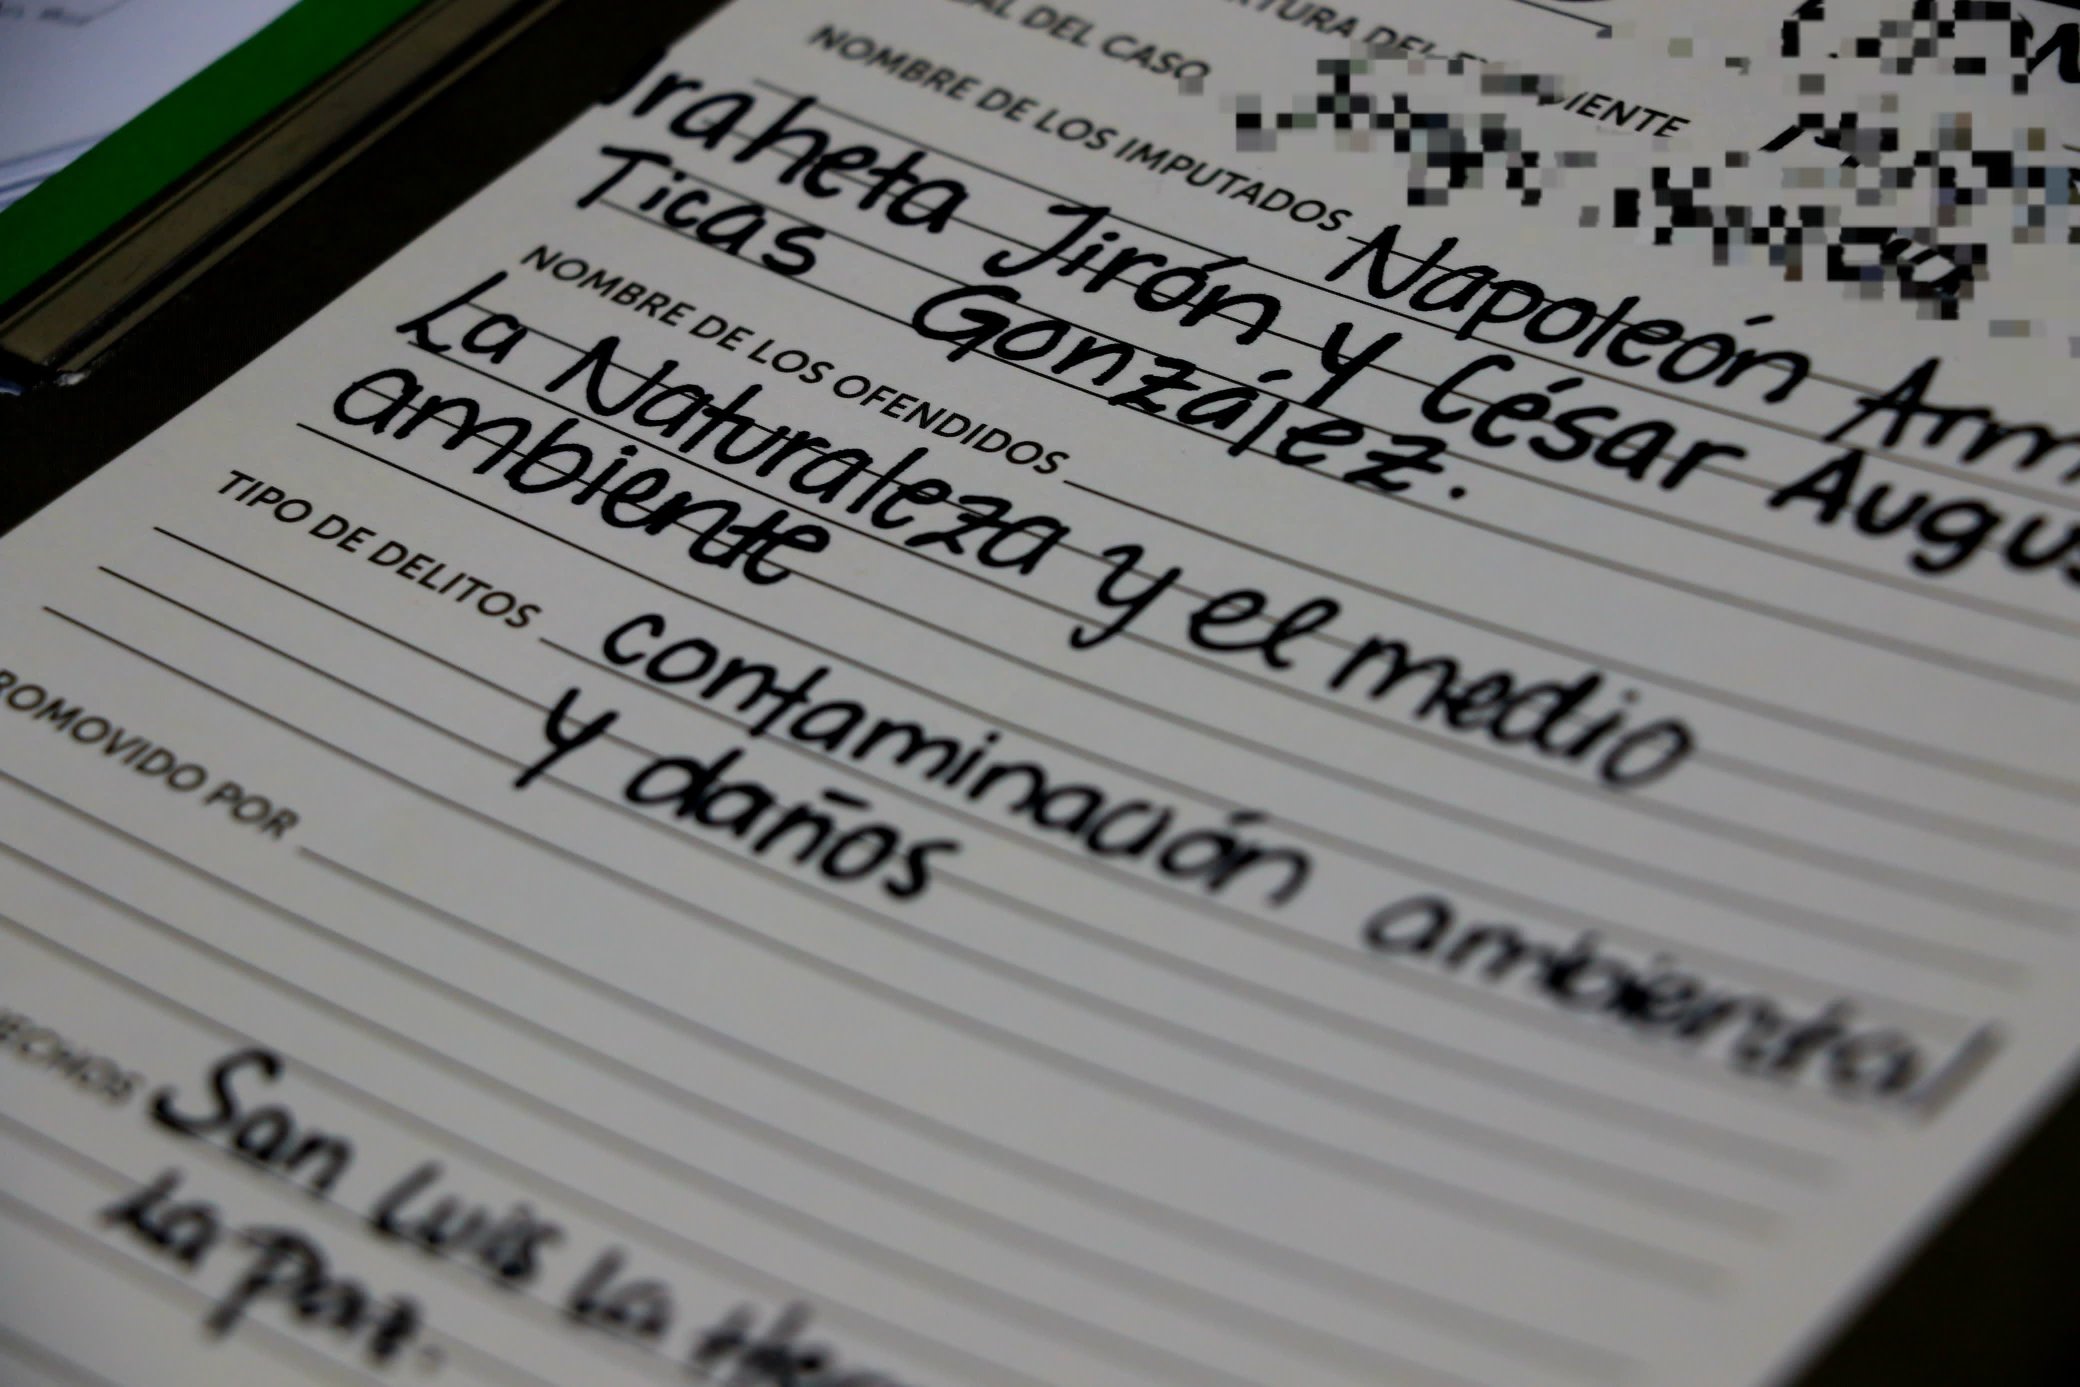 DEL CASO
NOMBRE DE LOS IMPUTADOS Napoleón Arm
raheta Jirón y César Augus
Ticas González.
NOMBRE DE LOS OFENDIDOS
La Naturaleza y el medio
ambiente
TIPO DE DELITOS contaminación ambiental
y daños
ROMOVIDO POR
ECHOS San Luis La Her
La Paz.